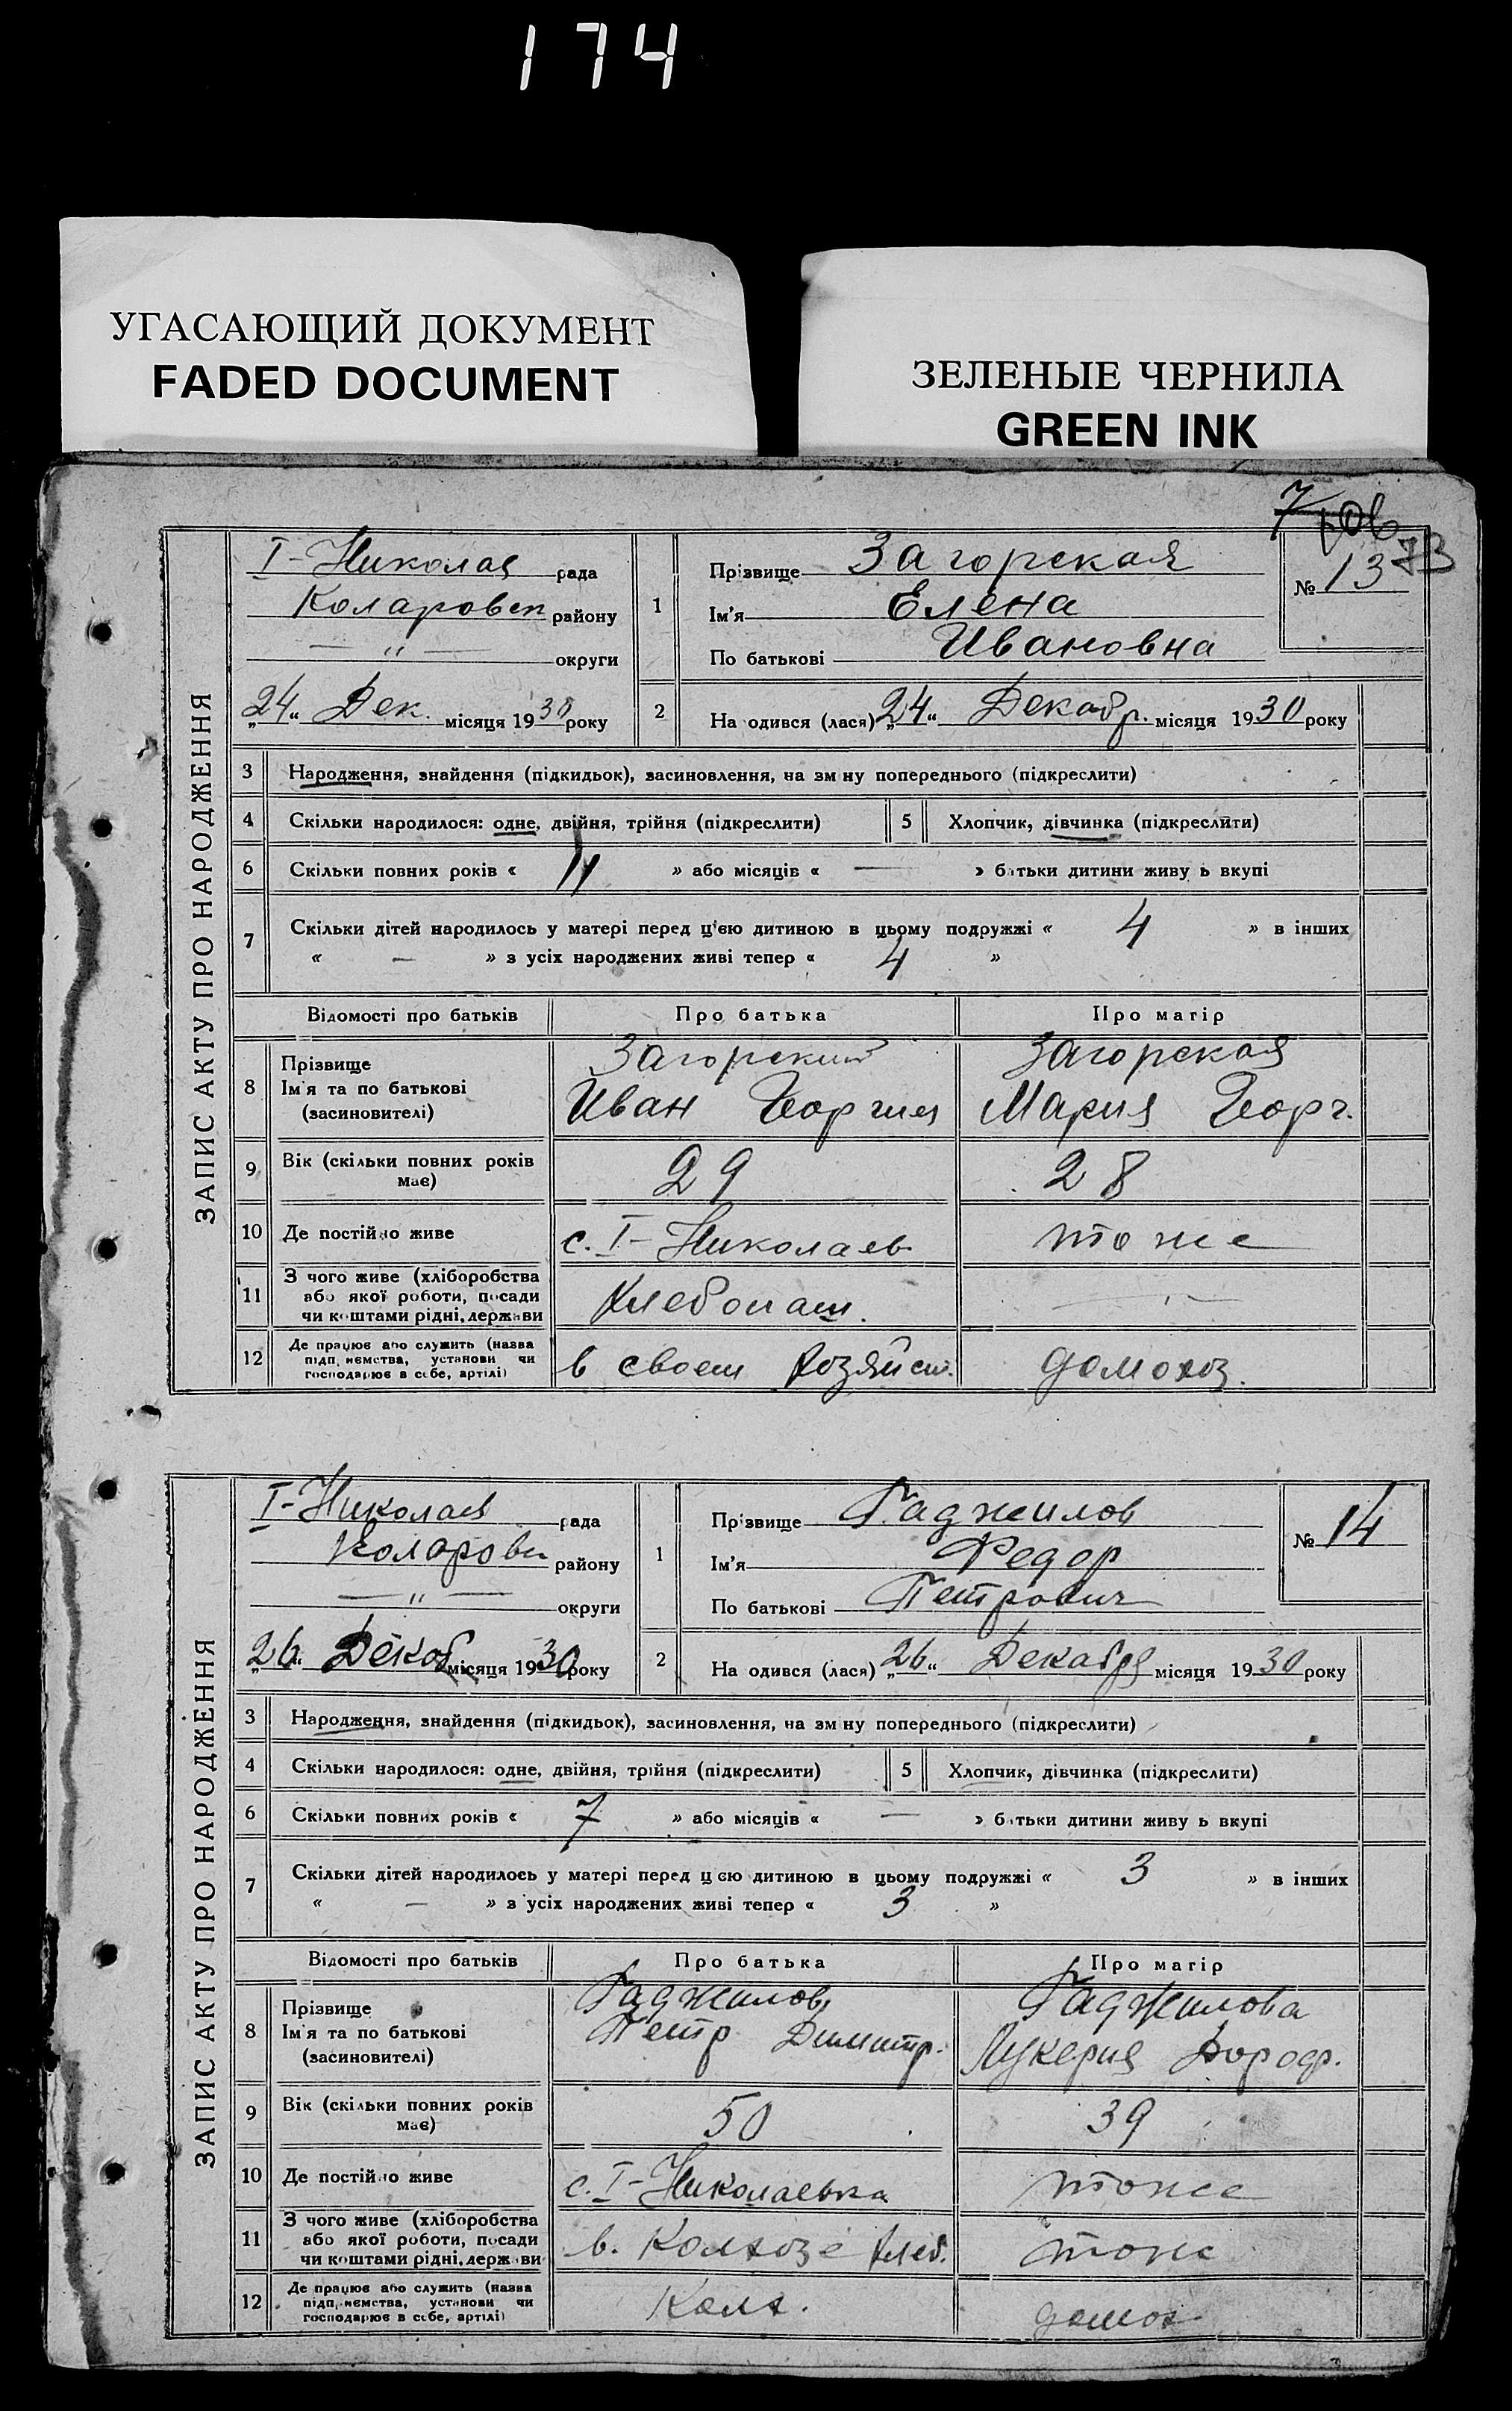 174
УГАСАЮЩИЙ ДОКУМЕНТ
FADED DOCUMENT
ЗЕЛЕНЫЕ ЧЕРНИЛА
GREEN INK
7
73
ЗАПИС АКТУ ПРО НАРОДЖЕННЯ
I-Николаев рада
Коларовск району
— „ — округи
„24“ Дек. місяця 1930 року
1 Прізвище Загорская
Ім'я Елена
По батькові Ивановна
№ 13
2 На одився (лася) „24“ Декабр. місяця 1930 року
3 Народження, знайдення (підкидьок), засиновлення, на зм ну попереднього (підкреслити)
4 Скільки народилося: одне, двійня, трійня (підкреслити) 5 Хлопчик, дівчинка (підкреслити)
6 Скільки повних років « 11 » або місяців « — » батьки дитини живу ь вкупі
7 Скільки дітей народилось у матері перед цією дитиною в цьому подружжі « 4 » в інших
« — » з усіх народжених живі тепер « 4 »
Відомості про батьків Про батька Про матір
8 Прізвище Загорский Загорская
Ім'я та по батькові Иван Георгиев Мария Георг.
(засиновителі)
9 Вік (скільки повних років має) 29 28
10 Де постійно живе с. I-Николаев. тоже
11 З чого живе (хліборобства Хлебопаш. — „ —
або якої роботи, посади
чи коштами рідні, держави
12 Де працює або служить (назва в своем хозяйст. домохоз.
підп иємства, установи чи
господарює в себе, артілі)
ЗАПИС АКТУ ПРО НАРОДЖЕННЯ
I-Николаев рада
Коларовск району
— „ — округи
„26“ Декаб місяця 1930 року
1 Прізвище Гаджилов
Ім'я Федор
По батькові Петрович
№ 14
2 На одився (лася) „26“ Декабря місяця 1930 року
3 Народження, знайдення (підкидьок), засиновлення, на зм ну попереднього (підкреслити)
4 Скільки народилося: одне, двійня, трійня (підкреслити) 5 Хлопчик, дівчинка (підкреслити)
6 Скільки повних років « 7 » або місяців « — » батьки дитини живу ь вкупі
7 Скільки дітей народилось у матері перед цією дитиною в цьому подружжі « 3 » в інших
« — » з усіх народжених живі тепер « 3 »
Відомості про батьків Про батька Про матір
8 Прізвище Гаджилов Гаджилова
Ім'я та по батькові Петр Димитр. Лукерия Дороф.
(засиновителі)
9 Вік (скільки повних років має) 50 39
10 Де постійно живе с. I-Николаевка тоже
11 З чого живе (хліборобства в. Колхозе хлеб. тоже
або якої роботи, посади
чи коштами рідні, держави
12 Де працює або служить (назва Колх. домох
підп иємства, установи чи
господарює в себе, артілі)